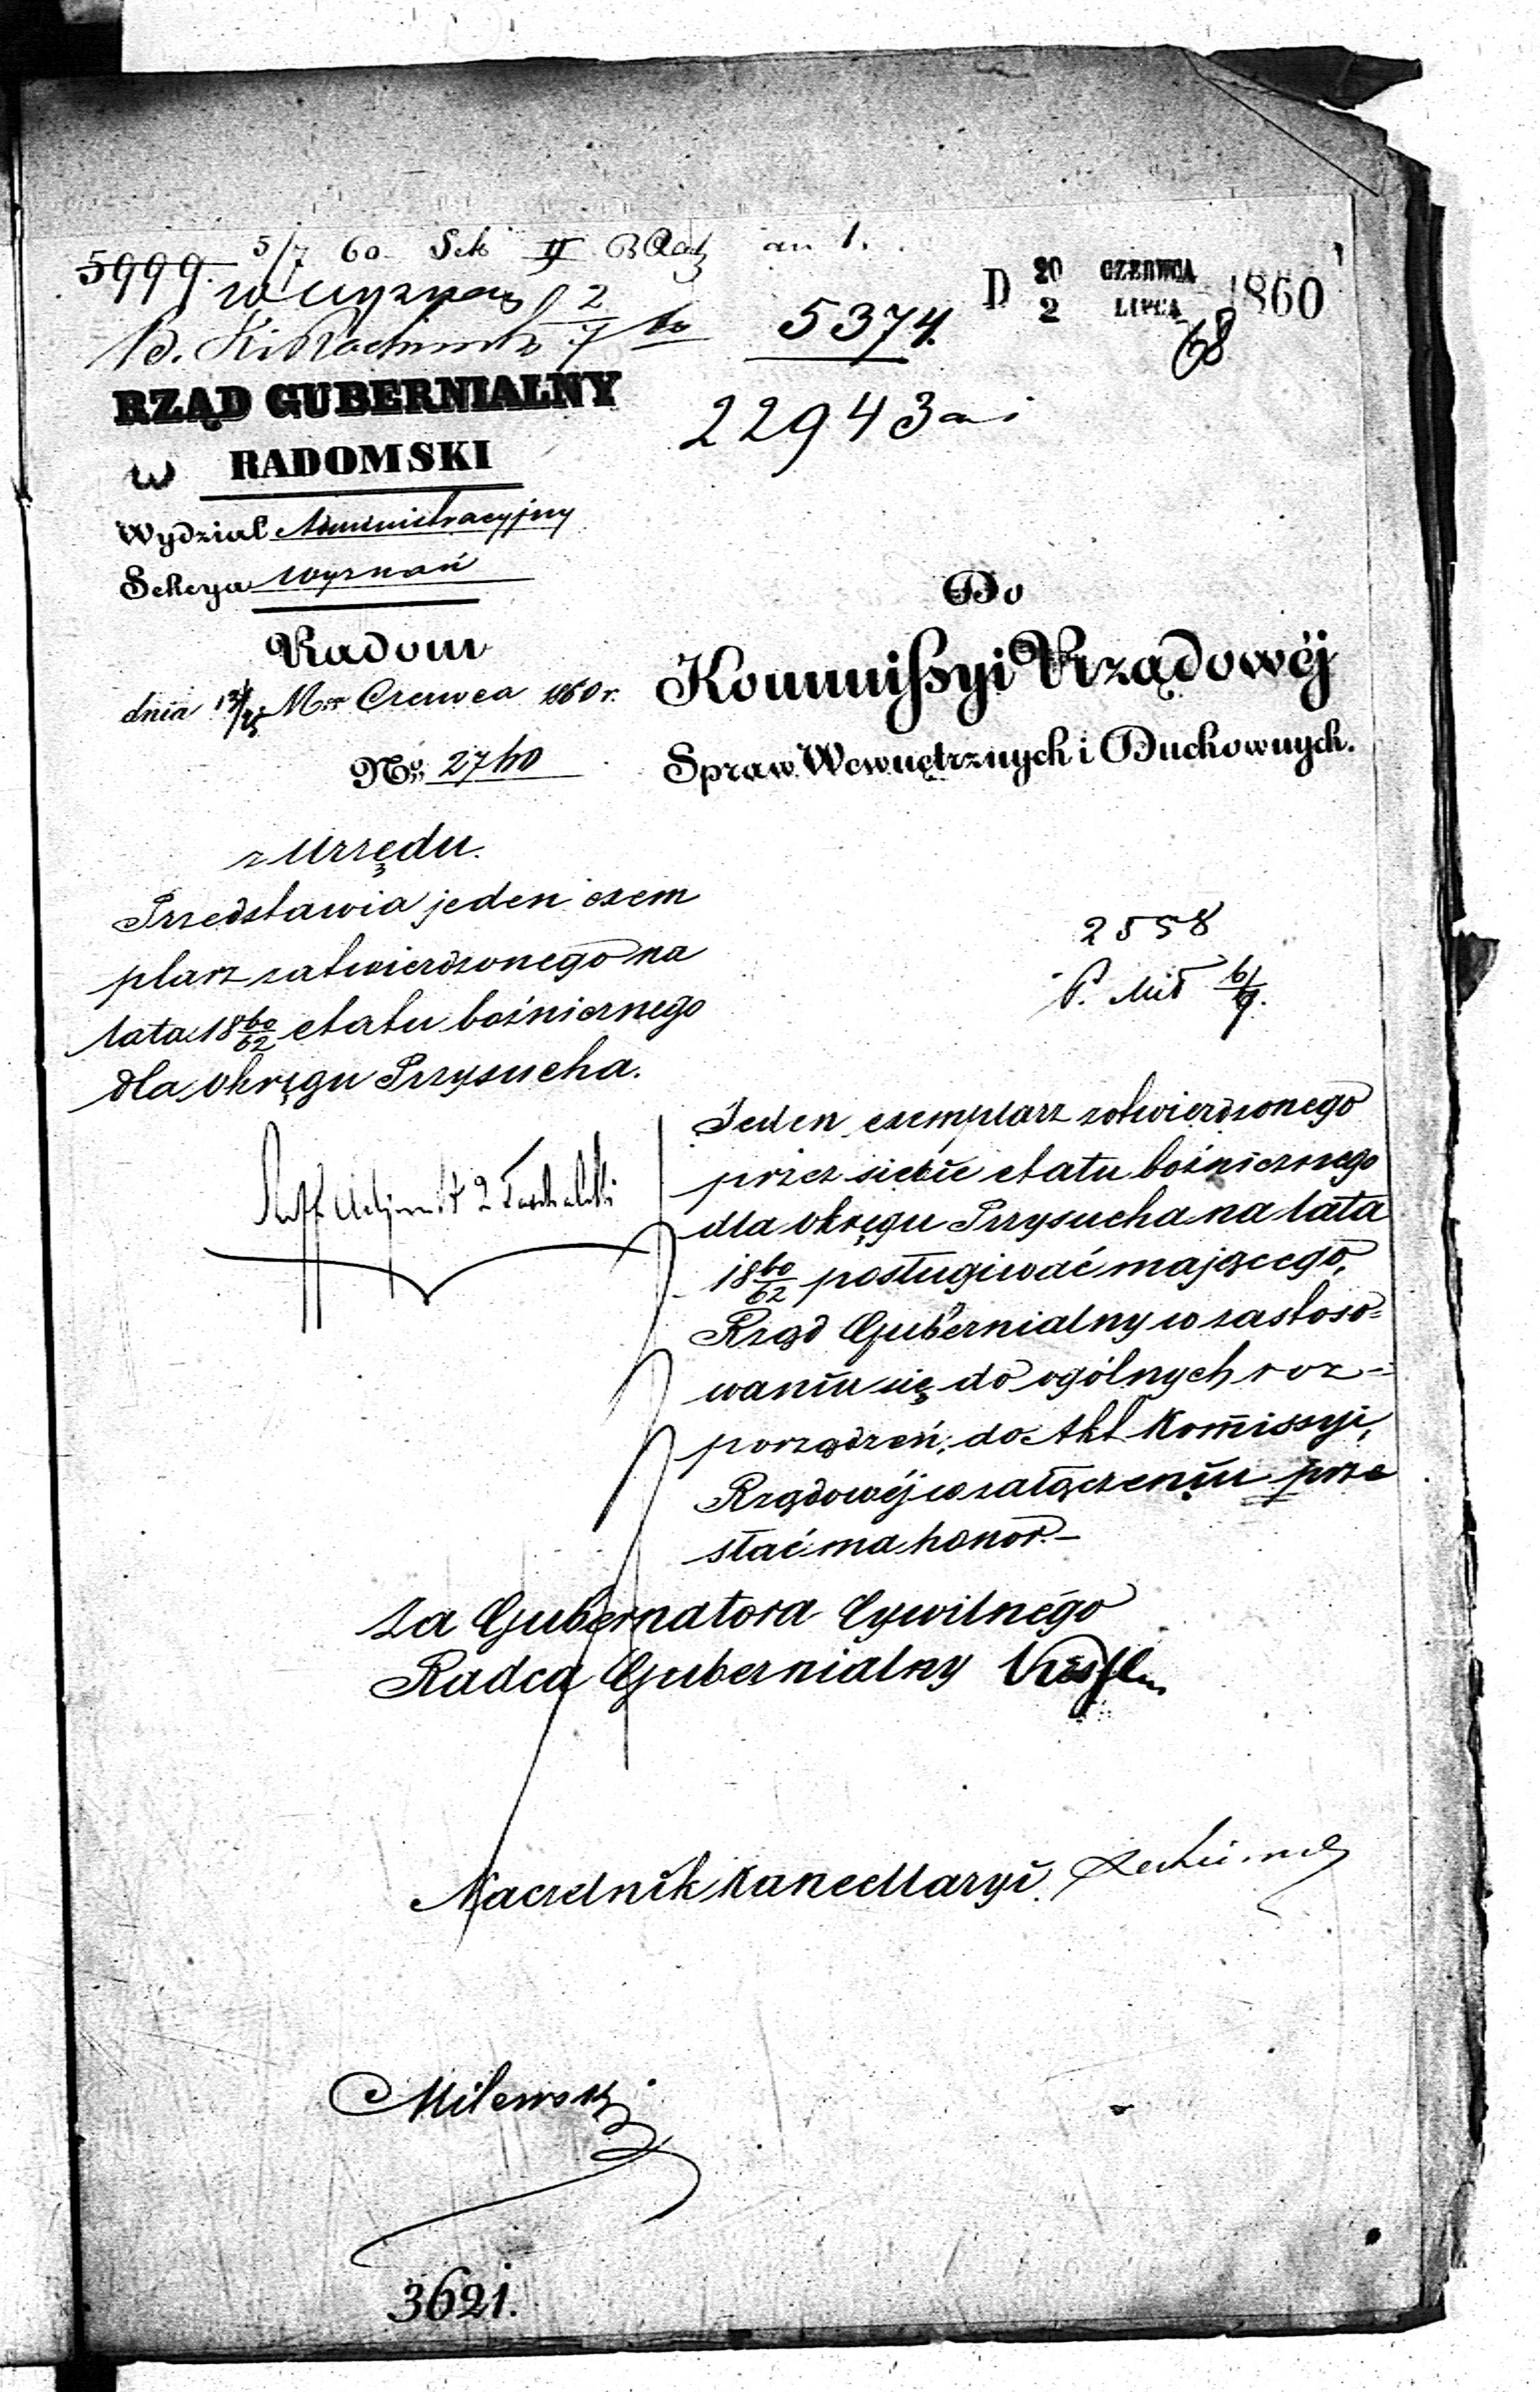 5999. 5/7 60 Sek II
D 20/2 CZERWCA/LIPCA 1860
5374.
68
22943
RZĄD GUBERNIALNY
RADOMSKI
Wydział Administracyjny
Sekcya Wyznań
Radom
dnia 13/25 Mca Czerwca 1860 r.
No. 2760
Do
Kommissyi Rządowéj
Spraw Wewnętrznych i Duchownych.
z Urzędu.
Przedstawia jeden exem
plarz zatwierdzonego na
lata 18 60/62 etatu bożnicznego
dla Okręgu Przysucha.
2558
Jeden exemplarz zatwierdzonego
przez siebie etatu bożnicznego
dla Okręgu Przysucha na lata
18 60/62 posługiwać mającego,
Rząd Gubernialny w zastoso=
waniu się do ogólnych roz=
porządzeń, do Akt Kommissyi
Rządowéj w załączeniu prze
słać ma honor.—
Za Gubernatora Cywilnego
Radca Gubernialny
Naczelnik Kancellaryi
Milewski
3621.